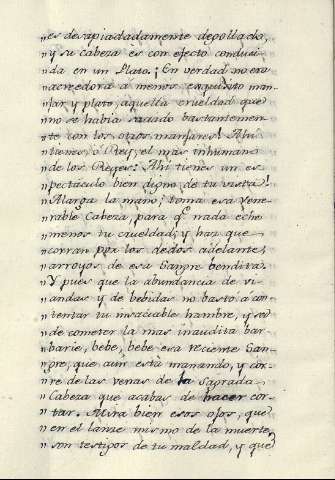 "es desapiadadamente degollado,
"y su cabeza es con efecto conduci-
"da en un Plato. ¡En verdad no era
"acreedora á menos exquisito man-
"jar y plato, aquella crueldad que
"no se habia saciado bastantemen-
"te con los otros manjares! Ahi
"tienes, ó Rey, el mas inhumano
"de los Reyes: Ahi tienes un es-
"pectáculo bien digno de tu vista!
"Alarga la mano; toma esa Vene-
"rable Cabeza, para qe nada eche
"menos tu crueldad; y haz que
"corran por los dedos adelante,
"arroyos de esa Sangre bendita.
"Y pues que la abundancia de vi-
"andas y de bebidas no bastó á con-
"tentar tu insaciable hambre, y sed
"de cometer la mas inaudita bar-
"barie, bebe, bebe esa reciente San-
"gre, que aún está manando, y cor-
"re de las venas de la Sagrada
"Cabeza que acabas de hacer cor-
"tar. Mira bien esos ojos, que
"en el lance mismo de la muerte,
"son testigos de tu maldad, y que